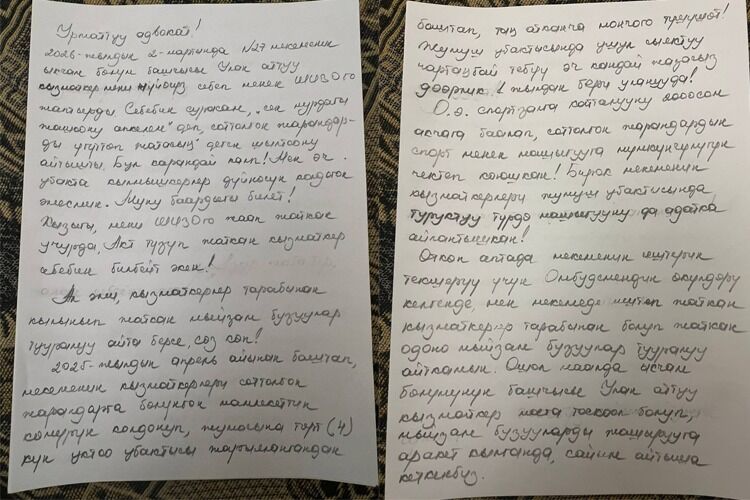 Урматтуу адвокат!
2026-жылдын 2-мартында №27 мекеменин
ыкчам бөлүм башчысы Улан аттуу
кызматкер мени жүйөсүз себеп менен ШИЗОго
жапты. Себебин сурасам, "сен нурдагы
жашоону апкелем" деп, соттолгон жарандар-
ды үгүттөп жатасың" деген шылтоону
айтышты. Бул карандай калп! Мен эч
убакта кылмышкерлер дүйнөсүн колдогон
эмесмин. Муну баардыгы билет!
Кызыгы, мени ШИЗОго жаап жаткан
учурда, Акт түзүп жаткан кызматкер
себебин билбейт экен!
Ал эми, кызматкерлер тарабынан
кылынып жаткан мыйзам бузуулар
тууралуу айта берсе, сөз көп!
2025-жылдын апрель айынан баштап,
мекеменин кызматкерлери соттолгон
жарандарга бөлүнгөн мамлекеттик
көмүрүн колдонуп, жумасына төрт (4)
күн уктоо убактысы жарыялангандан
баштап, таң атканча мончого түшүшөт!
Жумуш убактысында үчүн сыектүү
чартаңбай тебүү эч кандай жазасыз
доортип. 1 жылдан бери уланууда!
О.э. спортзалга катталууну 2000сом
акчага баалап, соттолгон жарандардын
спорт менен машыгууга мүмкүнчүлүгүн
чектеп коюшкан! Бирок мекеменин
кызматкерлери жумуш убактысында
туруктуу түрдө машыгууну да адатка
айлантышкан!
Өткөн аптада мекеменин иштерин
текшерүү үчүн Омбудсмендин өкүлдөрү
келгенде, мен мекемеде иштеп жаткан
кызматкерлер тарабынан болуп жаткан
одоно мыйзам бузуулар тууралуу
айткамын. Ошол маалда ыкчам
бөлүмүнүн башчысы Улан аттуу
кызматкер мага тоскоол болуп,
мыйзам бузууларды жашырууга
аракет кылганда, сайын айтыша
кеткенбиз.